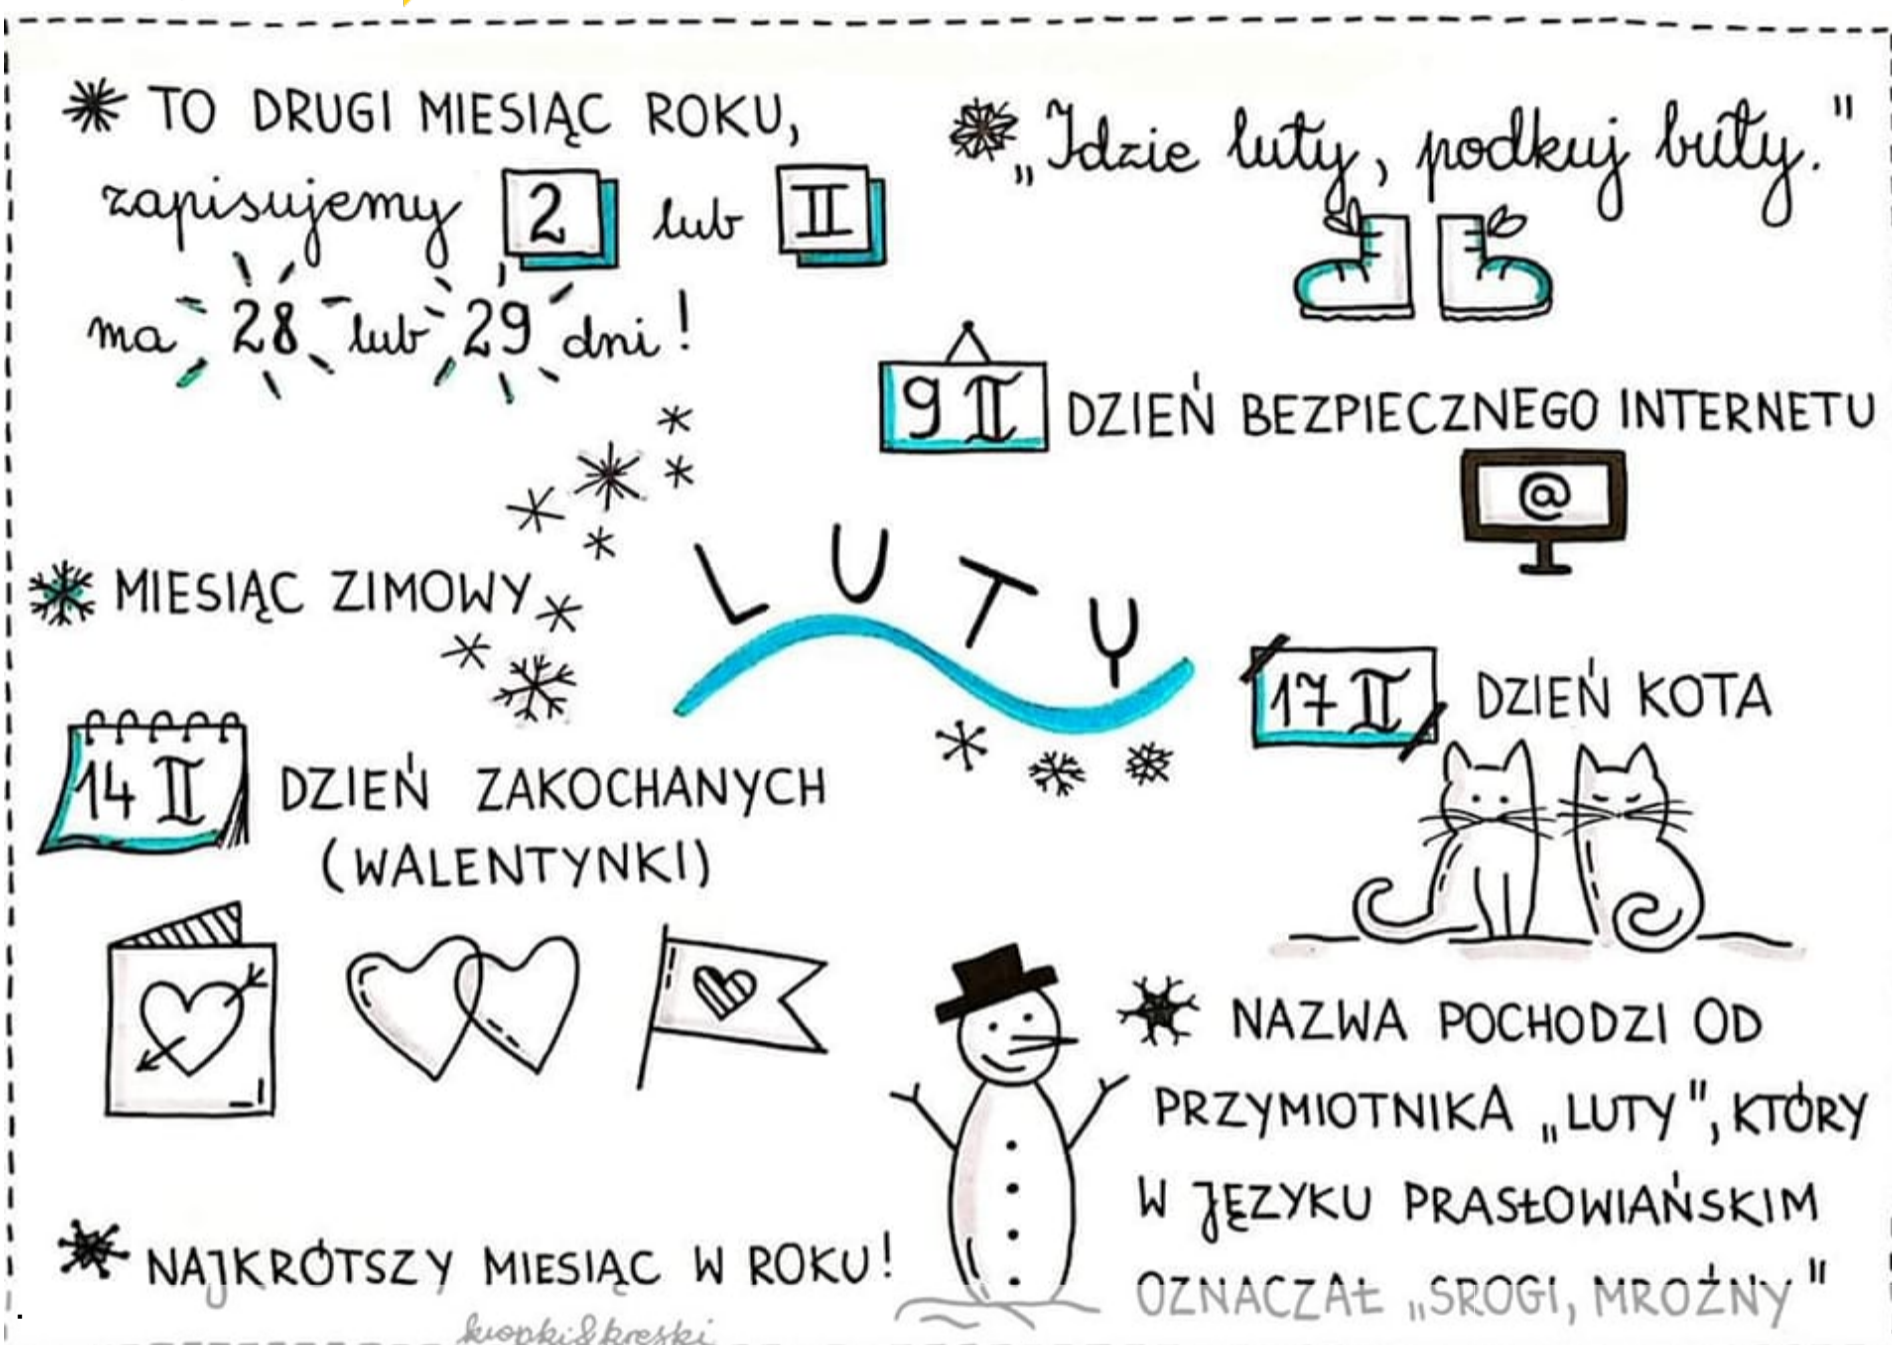 TO DRUGI MIESIĄC ROKU,
zapisujemy 2 lub II
ma 28 lub 29 dni!
„Idzie luty, podkuj buty."
9 II DZIEŃ BEZPIECZNEGO INTERNETU
@
MIESIĄC ZIMOWY
LUTY
14 II DZIEŃ ZAKOCHANYCH
(WALENTYNKI)
17 II DZIEŃ KOTA
NAZWA POCHODZI OD
PRZYMIOTNIKA „LUTY", KTÓRY
W JĘZYKU PRASŁOWIAŃSKIM
OZNACZAŁ „SROGI, MROŹNY"
NAJKRÓTSZY MIESIĄC W ROKU!
kropki&kreski